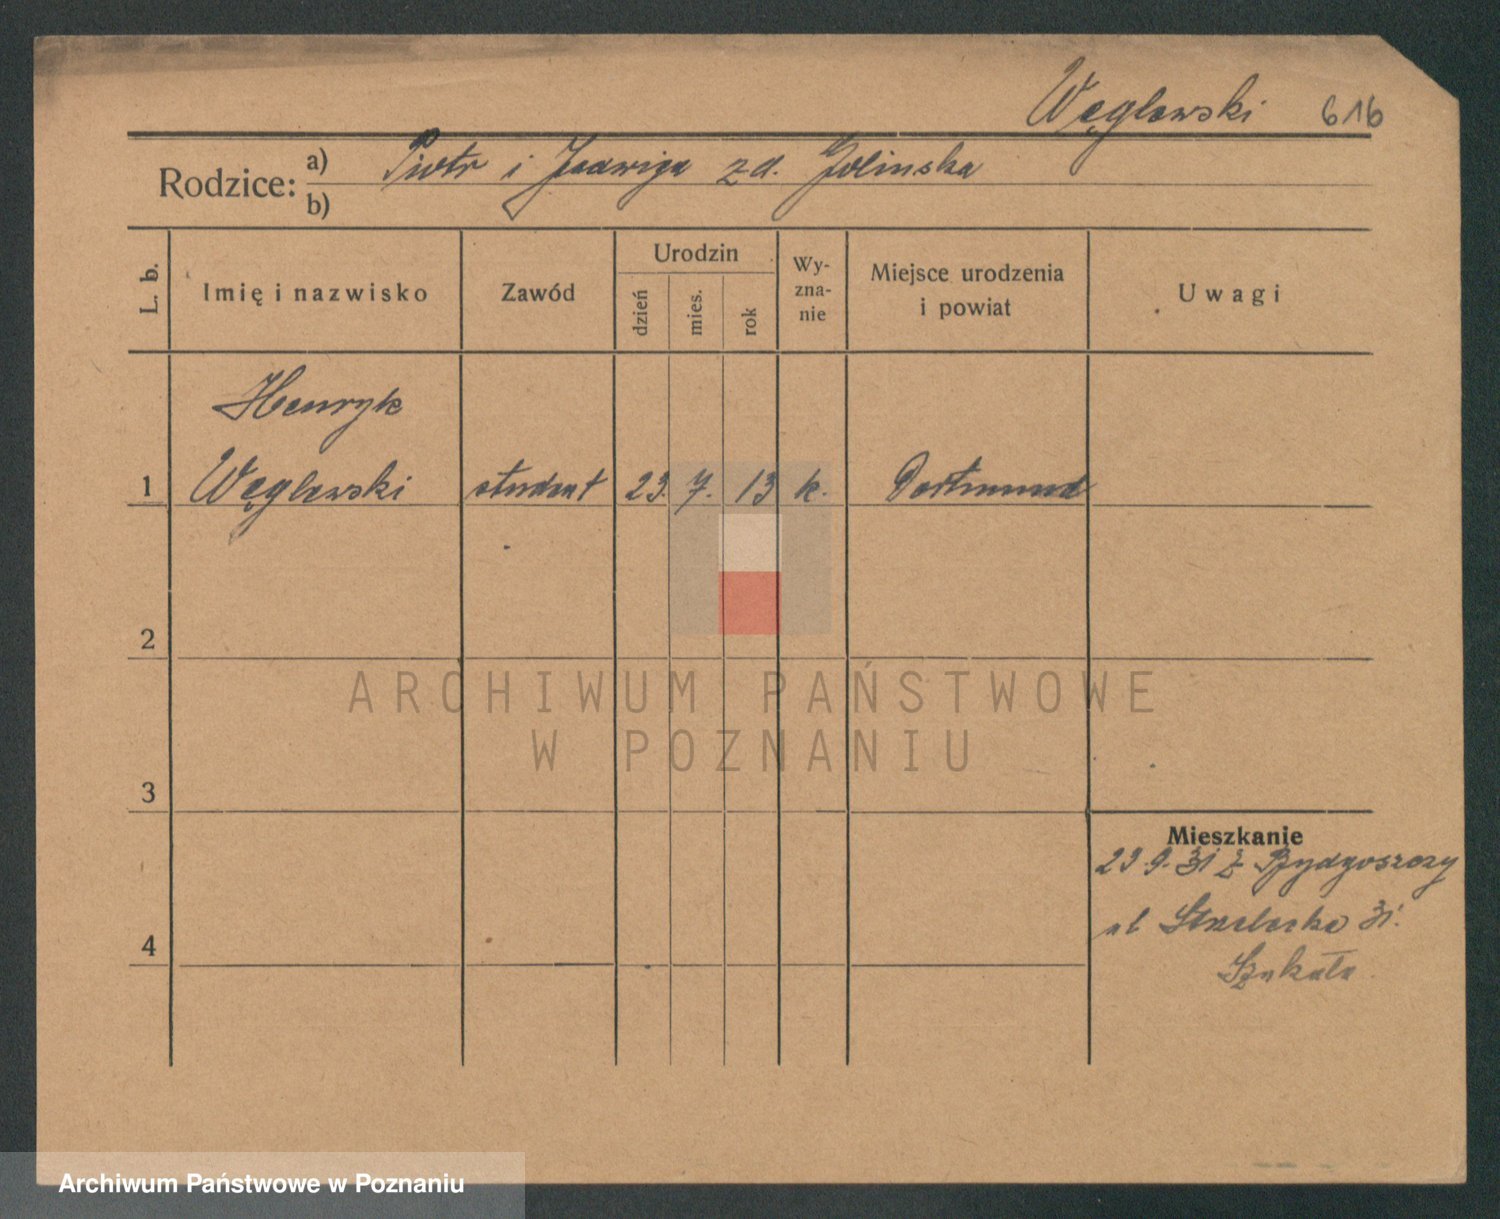 Węglewski 616
Rodzice: a) Piotr i Jadwiga zd. Golinska
b)
L. b.
Imię i nazwisko
Zawód
Urodzin
dzień
mies.
rok
Wy-
zna-
nie
Miejsce urodzenia
i powiat
Uwagi
Henryk
1 Węglewski student 23. 7. 13 k. Dortmund
2
3
4
Mieszkanie
23.9.31 z Bydgoszczy
ul Strzelecka 31.
Szukała
ARCHIWUM PAŃSTWOWE
W POZNANIU
Archiwum Państwowe w Poznaniu